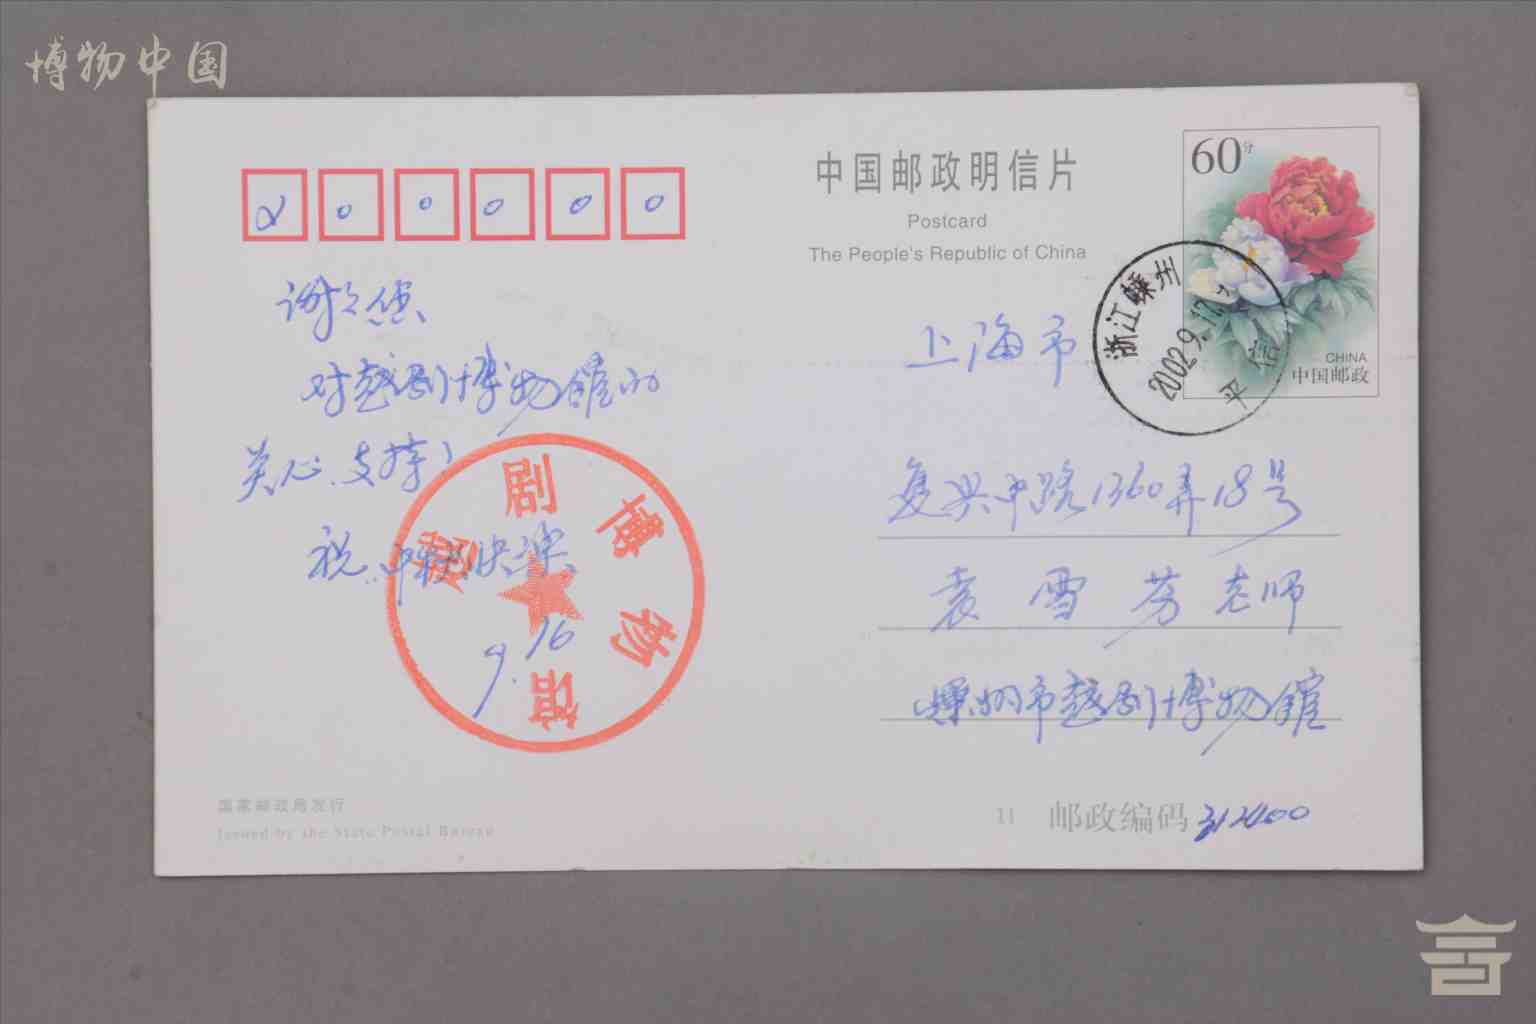 博物中国
200000
中国邮政明信片
Postcard
The People's Republic of China
60分
CHINA
中国邮政
浙江嵊州
2002.9.17
平信
谢谢您
对越剧博物馆的
关心、支持!
祝中秋快乐
9.16
越剧博物馆
上海市
复兴中路1360弄18号
袁雪芬老师
嵊州市越剧博物馆
11 邮政编码 312400
国家邮政局发行
Issued by the State Postal Bureau